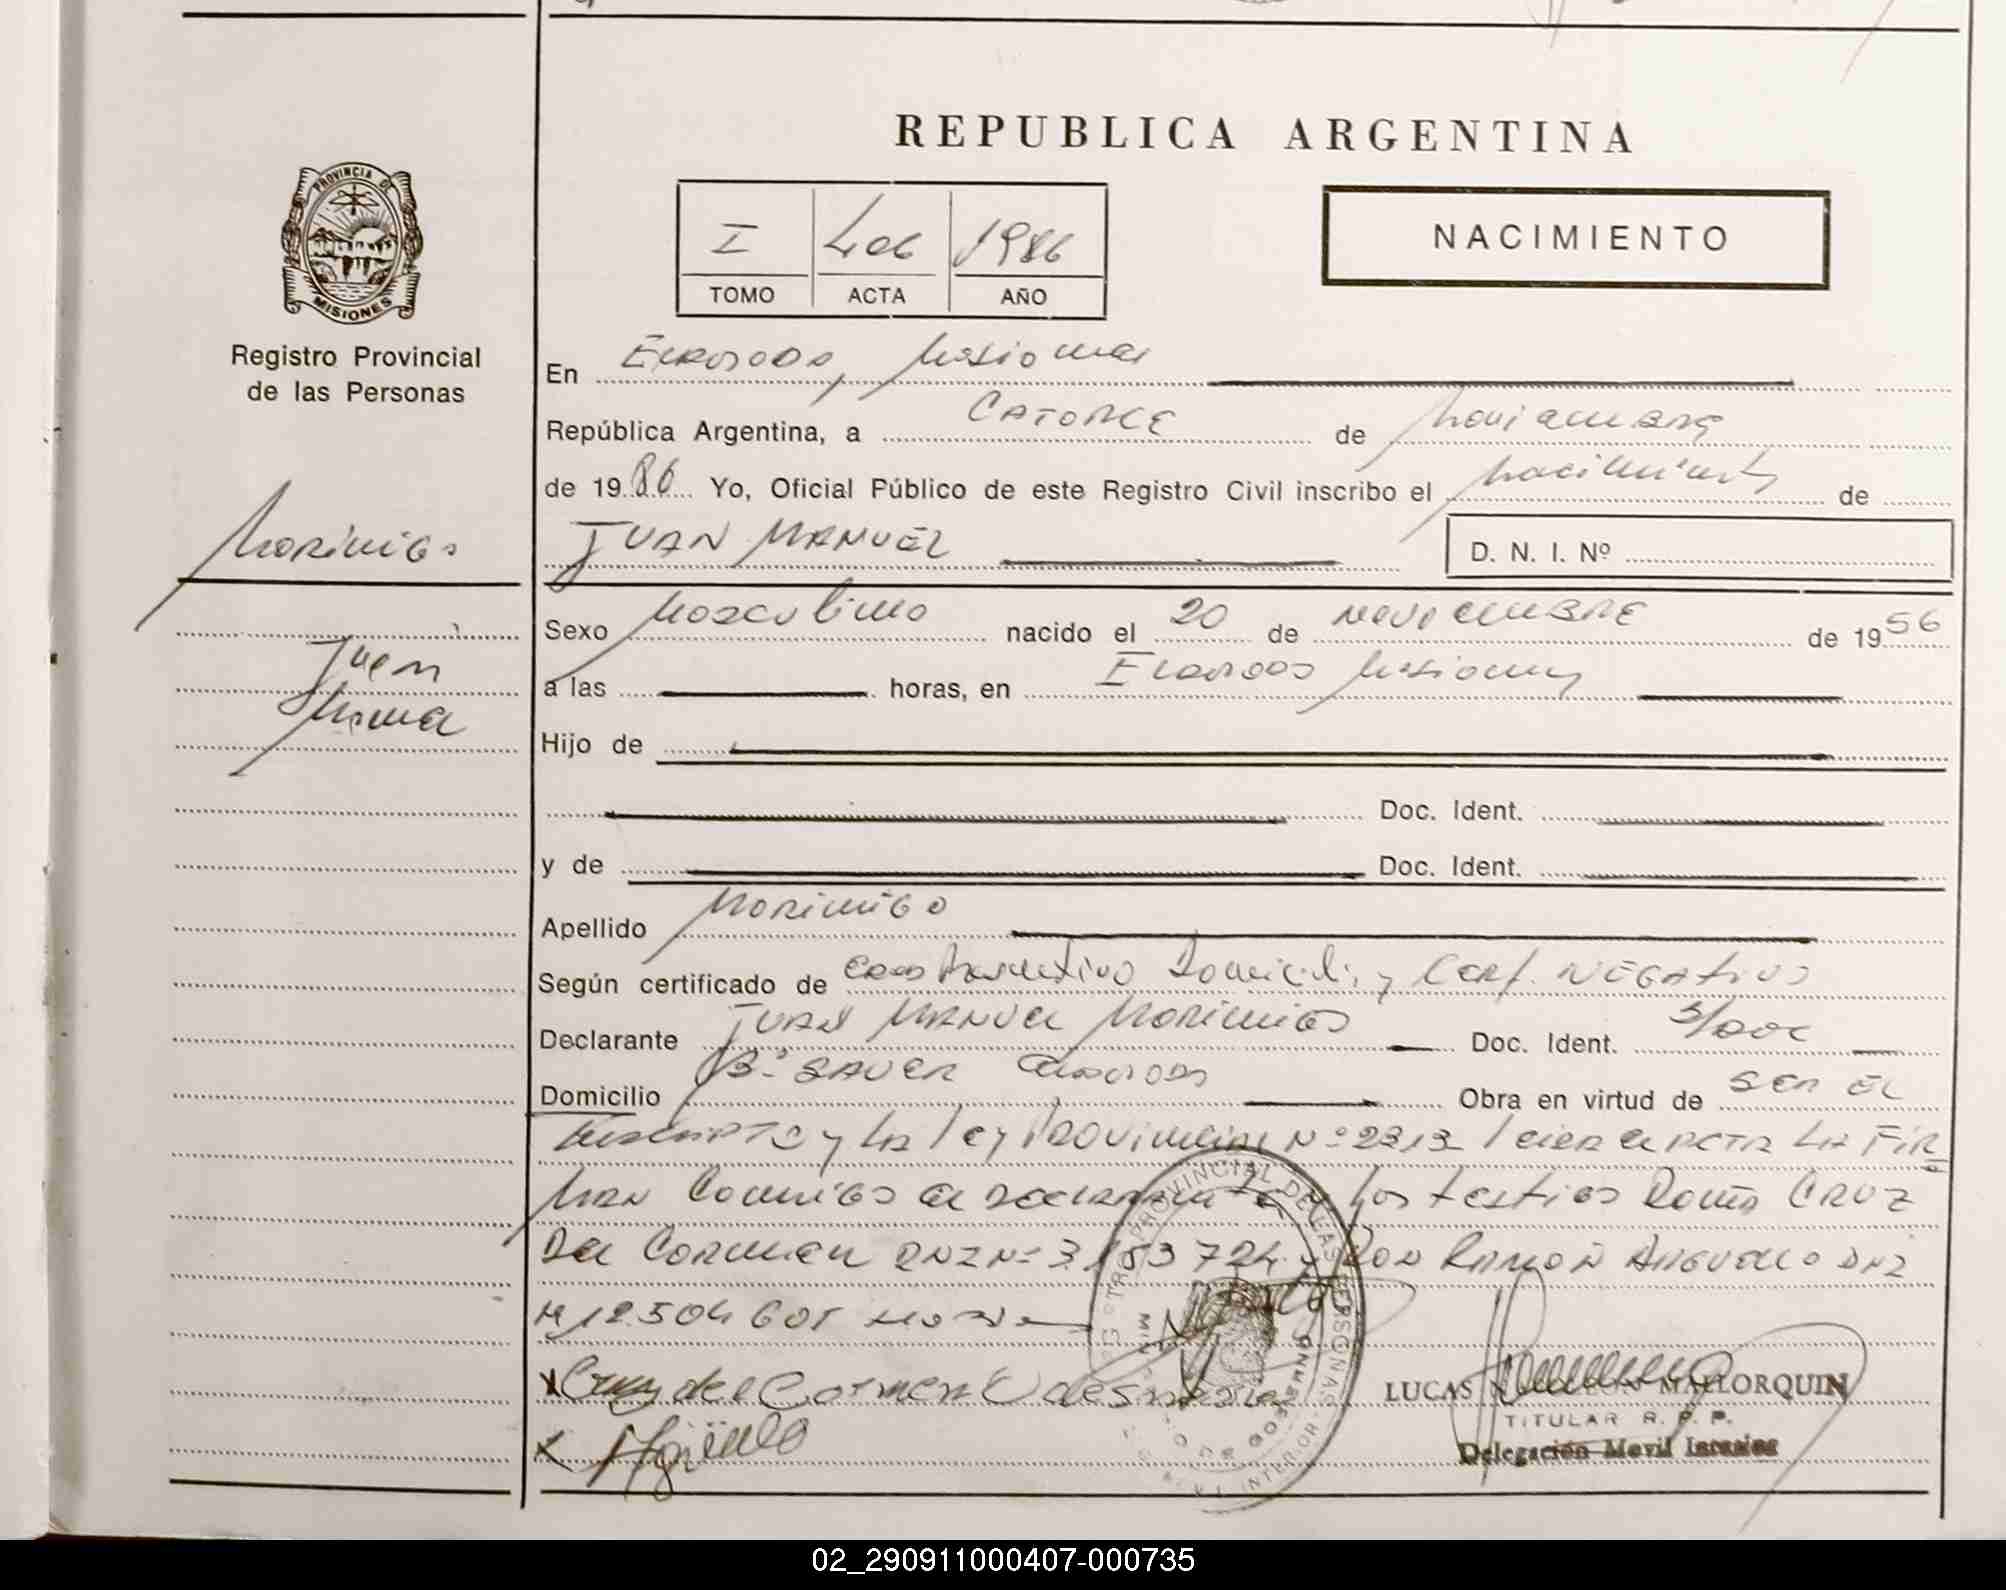 REPUBLICA ARGENTINA
PROVINCIA DE
MISIONES
Registro Provincial
de las Personas
I 406 1986
TOMO ACTA AÑO
NACIMIENTO
En Eldorado, Misiones
República Argentina, a CATORCE de Noviembre
de 1986 Yo, Oficial Público de este Registro Civil inscribo el nacimiento de
JUAN MANUEL
D. N. I. Nº
Morinigo
Juan
Manuel
Sexo Masculino nacido el 20 de NOVIEMBRE de 1956
a las horas, en Eldorado Misiones
Hijo de
Doc. Ident.
y de Doc. Ident.
Apellido Morinigo
Según certificado de Domicilio y Cert. NEGATIVO
Declarante JUAN MANUEL Morinigo Doc. Ident.
Domicilio Bº SAUER Eldorado Obra en virtud de SER EL
inscripto y la ley Provincial Nº 2313 leida el acta la fir
man conmigo el declarante los testigos Doña CRUZ
Del Carmen DNI Nº y Don RAMON DNI
Nº 12.504
Cruz del Carmen
LUCAS MALLORQUIN
TITULAR R. P. P.
Delegación Movil
02_290911000407-000735